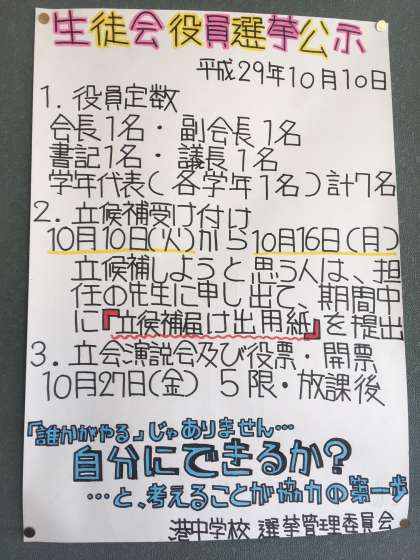 生徒会役員選挙公示
平成29年10月10日
1. 役員定数
会長1名・副会長1名
書記1名・議長1名
学年代表(各学年1名)計7名
2. 立候補受け付け
10月10日(火)から10月16日(月)
立候補しようと思う人は、担
任の先生に申し出て、期間中
に『立候補届け出用紙』を提出
3. 立会演説会及び役票・開票
10月27日(金) 5限・放課後
「誰かがやる」じゃありません…
自分にできるか?
…と、考えることが協力の第一歩
港中学校 選挙管理委員会